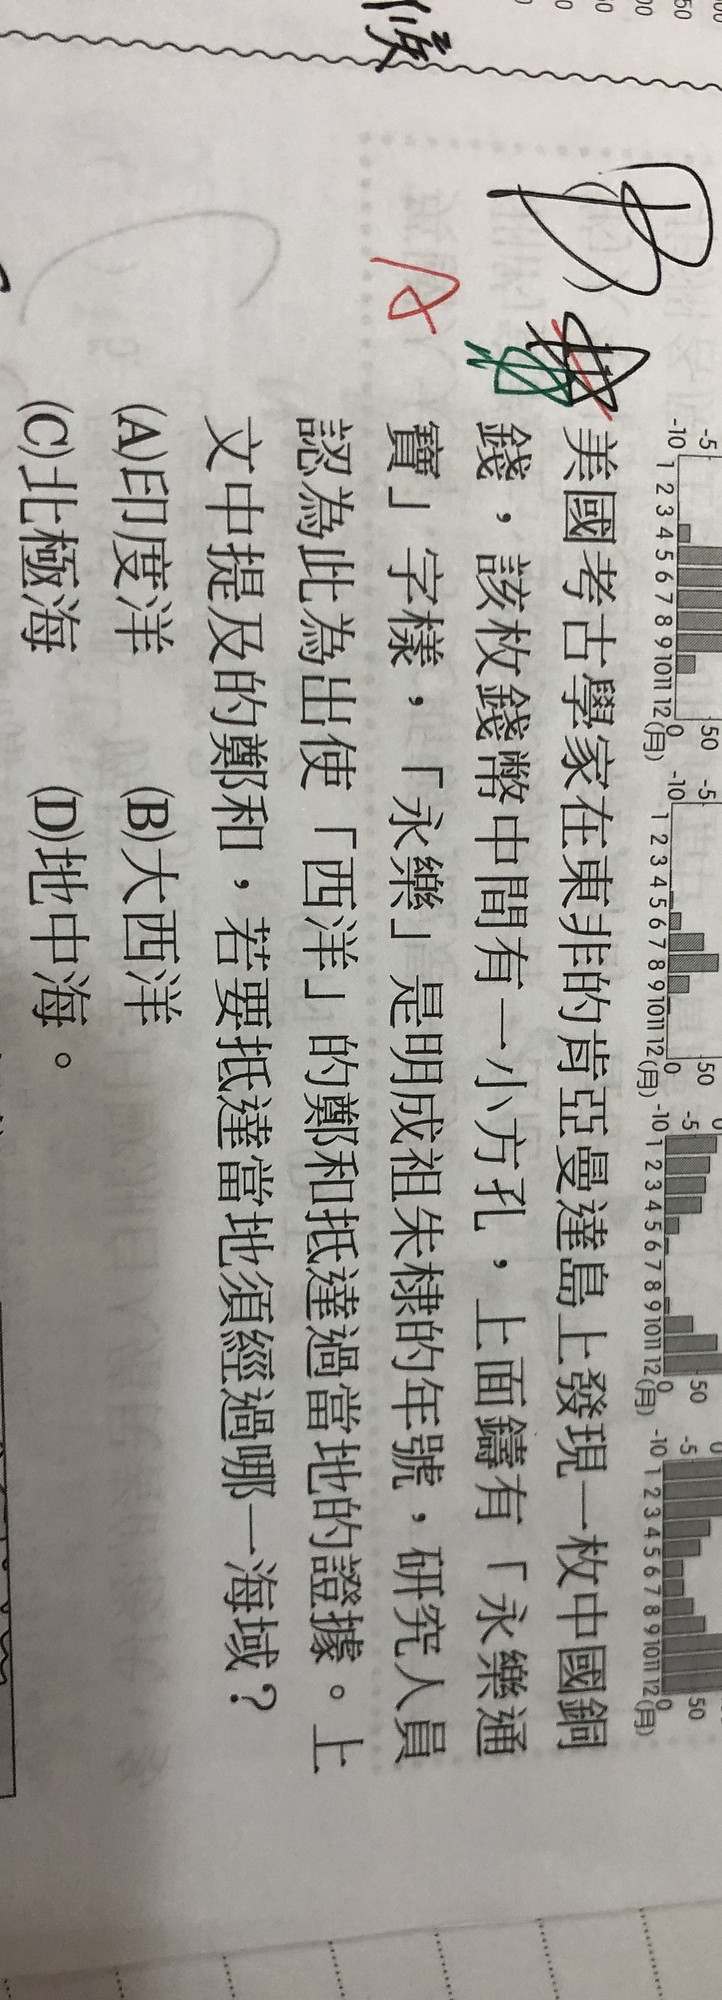 候
-5
-10
1 2 3 4 5 6 7 8 9 10 11 12(月)
50
0
-5
-10
1 2 3 4 5 6 7 8 9 10 11 12(月)
50
0
-5
-10
1 2 3 4 5 6 7 8 9 10 11 12(月)
50
0
-5
-10
1 2 3 4 5 6 7 8 9 10 11 12(月)
50
0
B
A
美國考古學家在東非的肯亞曼達島上發現一枚中國銅
錢，該枚錢幣中間有一小方孔，上面鑄有「永樂通
寶」字樣，「永樂」是明成祖朱棣的年號，研究人員
認為此為出使「西洋」的鄭和抵達過當地的證據。上
文中提及的鄭和，若要抵達當地須經過哪一海域？
(A)印度洋 (B)大西洋
(C)北極海 (D)地中海。